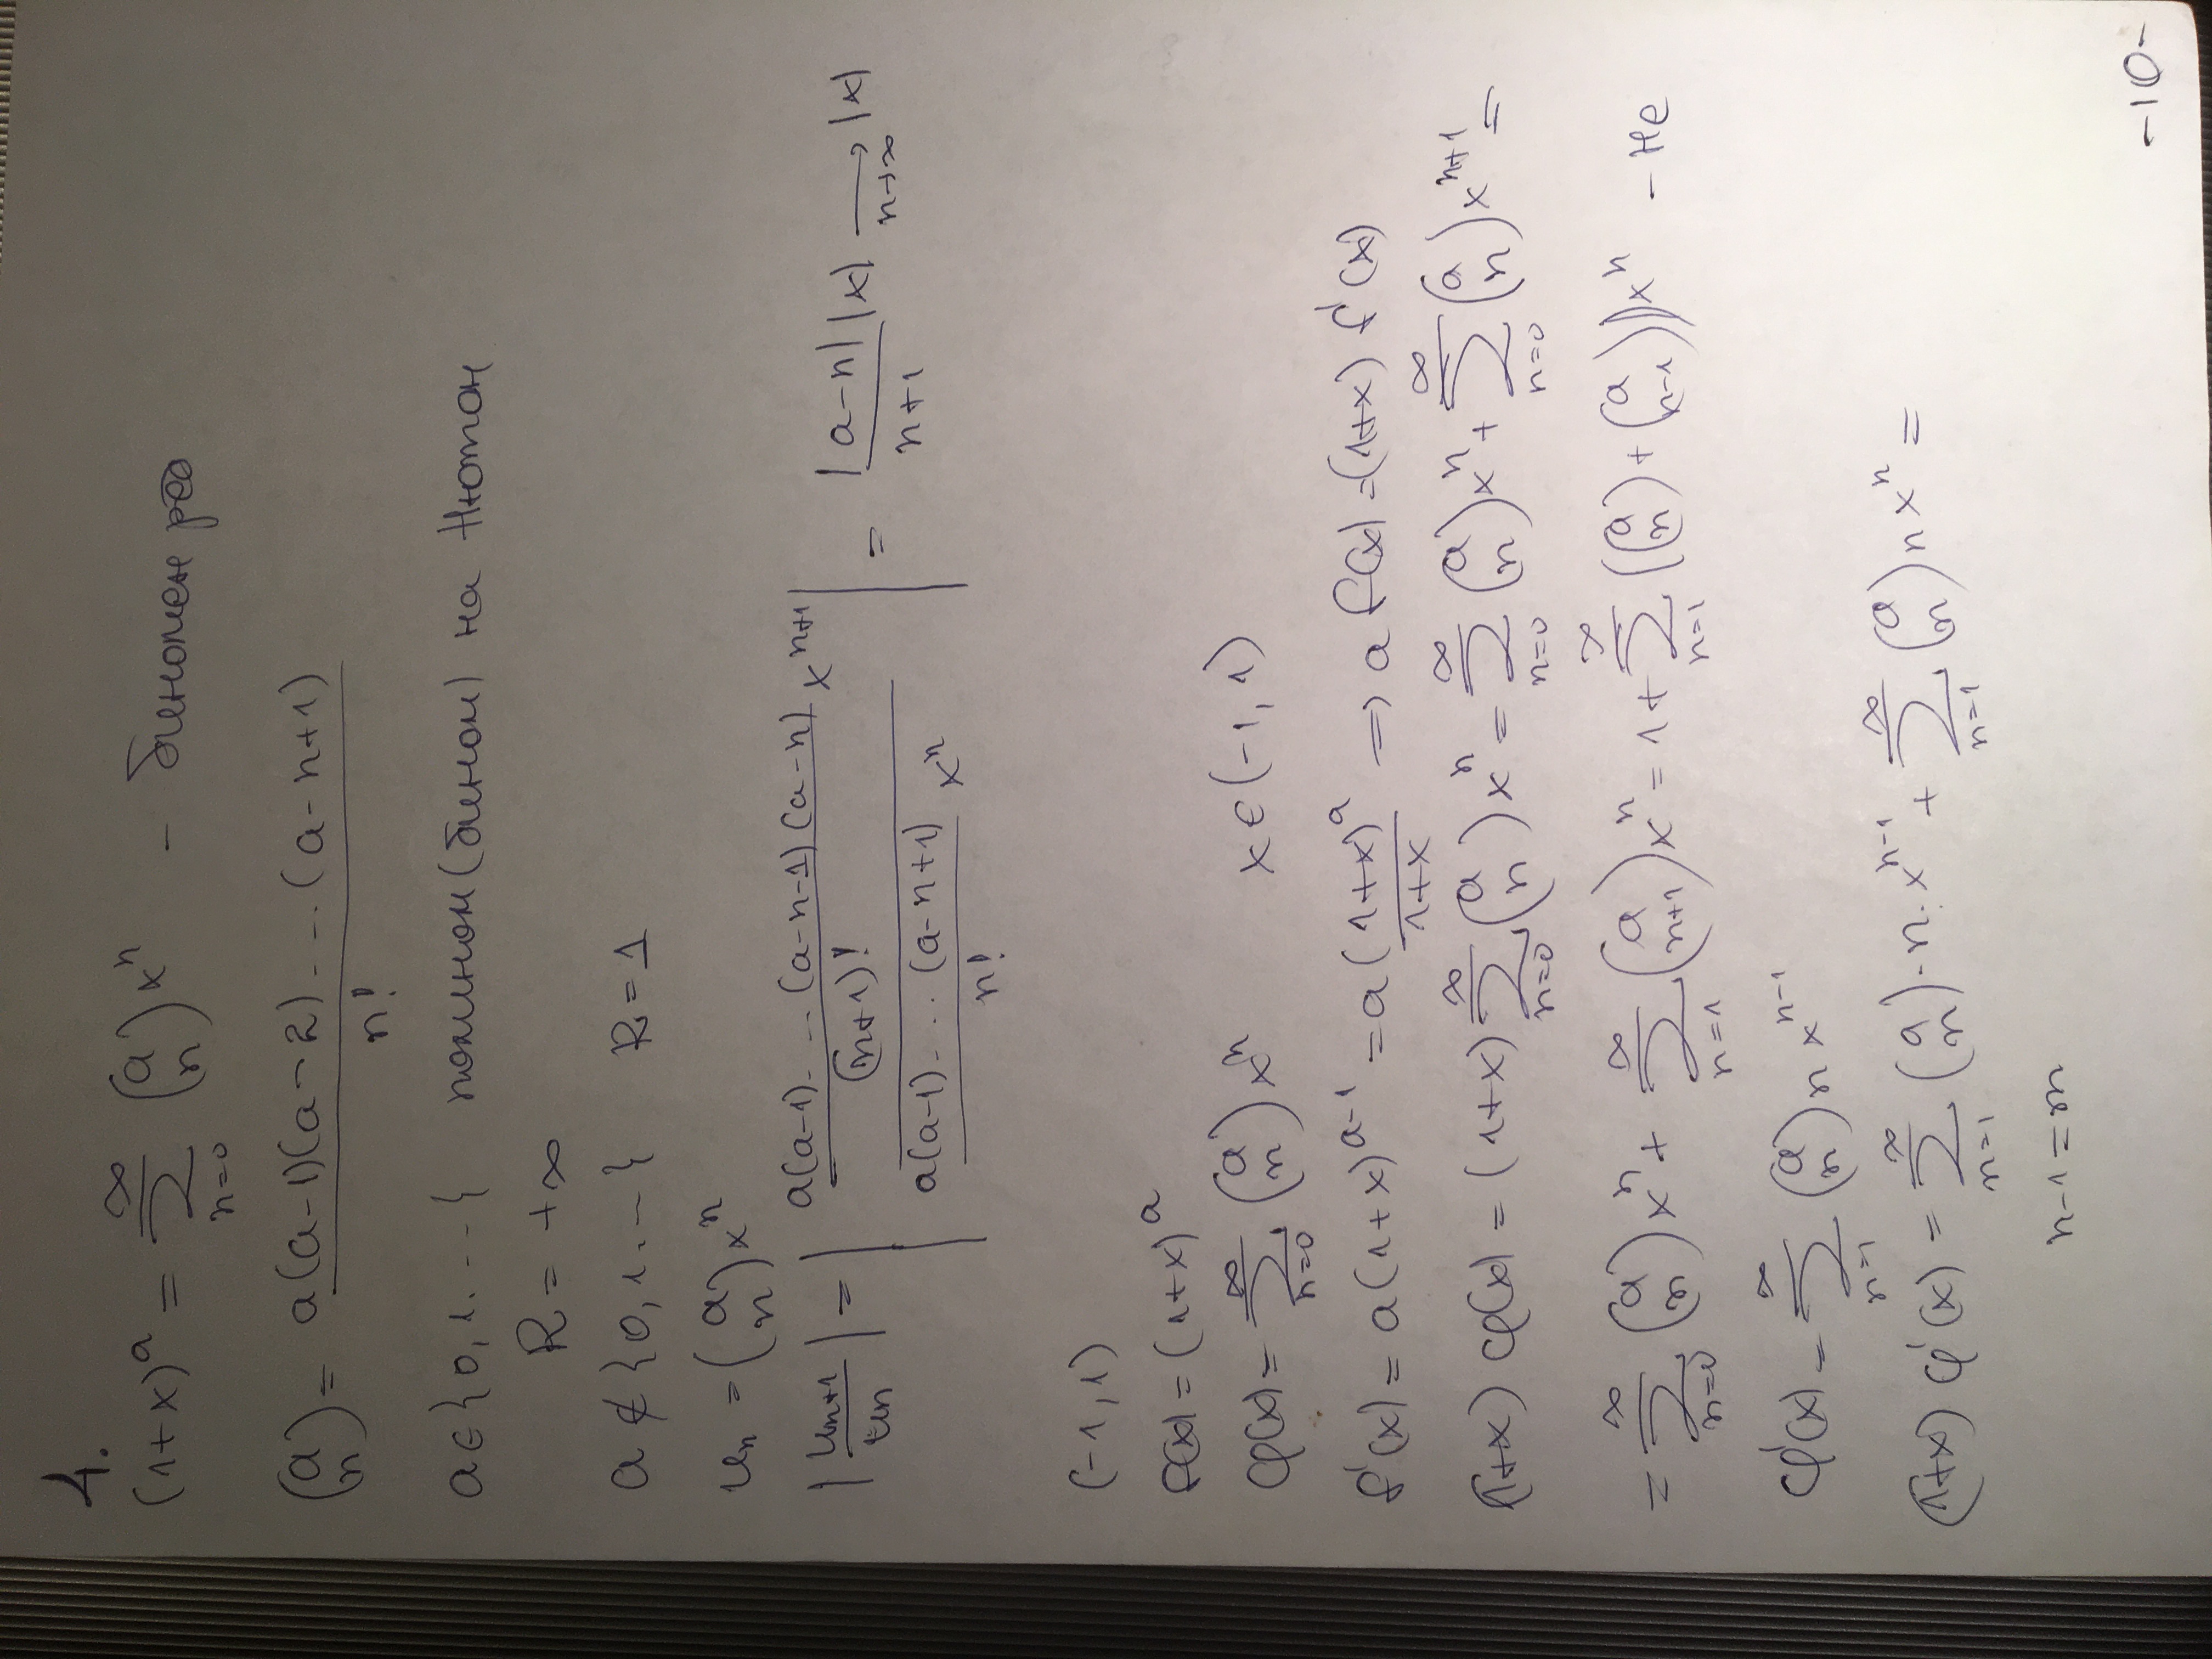 4.
(1+x)^a = ∑_{n=0}^{∞} (a n) x^n - биномен ред
(a n) = a(a-1)(a-2)....(a-n+1) / n!
a ∈ }0,1...{ полином (бином) на Нютон
R = +∞
a ∉ }0,1...} R = 1
u_n = (a n) x^n
|u_{n+1} / u_n| = | a(a-1)....(a-n-1)(a-n) / (n+1)! x^{n+1} / a(a-1)....(a-n+1) / n! x^n | = |a-n| / n+1 |x| →_{n→∞} |x|
(-1,1)
f(x) = (1+x)^a
φ(x) = ∑_{n=0}^{∞} (a n) x^n x ∈ (-1,1)
f'(x) = a(1+x)^{a-1} = a (1+x)^a / 1+x ⇒ a f(x) = (1+x) f'(x)
(1+x) φ(x) = (1+x) ∑_{n=0}^{∞} (a n) x^n = ∑_{n=0}^{∞} (a n) x^n + ∑_{n=0}^{∞} (a n) x^{n+1} =
= ∑_{n=0}^{∞} (a n) x^n + ∑_{n=1}^{∞} (a n+1) x^n = 1 + ∑_{n=1}^{∞} ((a n) + (a n-1)) x^n - не
φ'(x) = ∑_{n=1}^{∞} (a n) n x^{n-1}
(1+x) φ'(x) = ∑_{n=1}^{∞} (a n) . n . x^{n-1} + ∑_{n=1}^{∞} (a n) n x^n =
n-1 = m
-10-